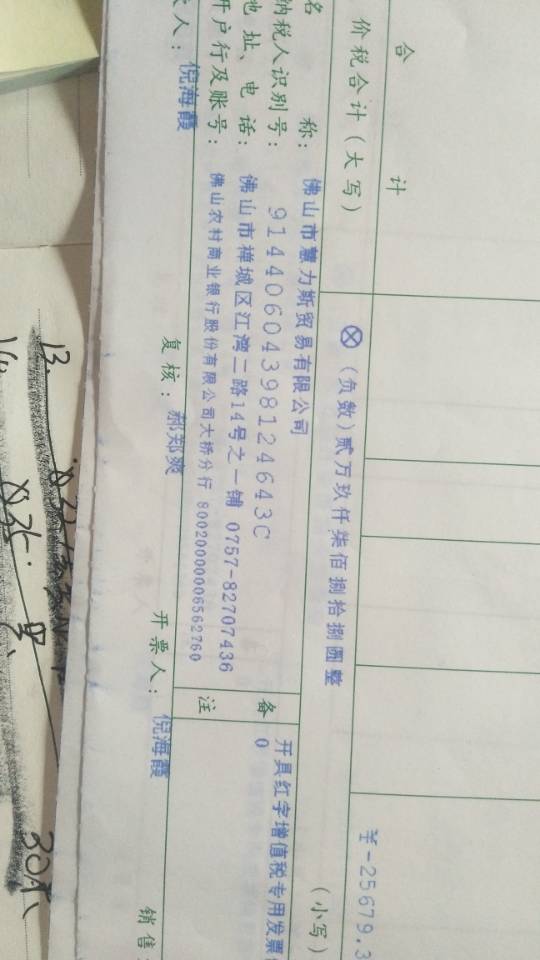 合 计 ¥-25679.3
价税合计（大写） ⊗（负数）贰万玖仟柒佰捌拾捌圆整 （小写）
名 称： 佛山市慧力斯贸易有限公司
纳税人识别号： 91440604398124643C
地 址、电 话： 佛山市禅城区江湾二路14号之一铺 0757-82707436
开户行及账号： 佛山农村商业银行股份有限公司大桥分行 80020000006562760
备
注
开具红字增值税专用发票
0
人： 倪海霞 复核： 郝郑爽 开票人： 倪海霞 销售
13.